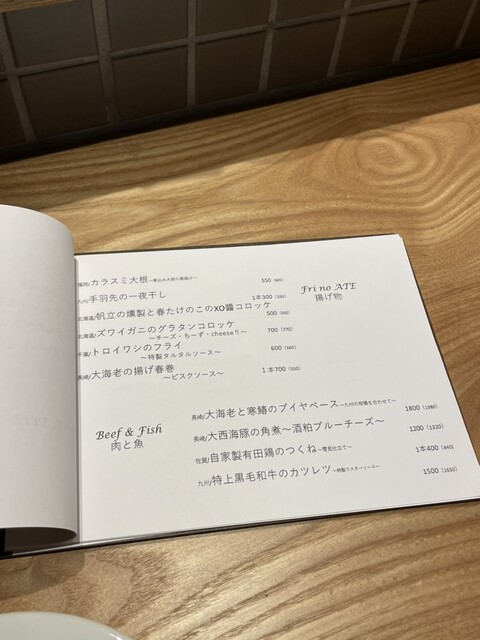 Fri no ATE
揚げ物
福岡/カラスミ大根 550
九州/手羽先の一夜干し 1本300(330)
北海道/帆立の燻製と春たけのこのXO醬コロッケ 500(550)
北海道/ズワイガニのグラタンコロッケ 700(770)
～チーズ・ちーず・cheese!!～
千葉/トロイワシのフライ 600(660)
～特製タルタルソース～
長崎/大海老の揚げ春巻 1本700(550)
～ビスクソース～
Beef & Fish
肉と魚
長崎/大海老と寒鰆のブイヤベース～九州の柑橘を合わせて～ 1800(1980)
長崎/大西海豚の角煮～酒粕ブルーチーズ～ 1200(1320)
佐賀/自家製有田鶏のつくね～雪見仕立て～ 1本400(440)
九州/特上黒毛和牛のカツレツ 1500(1650)